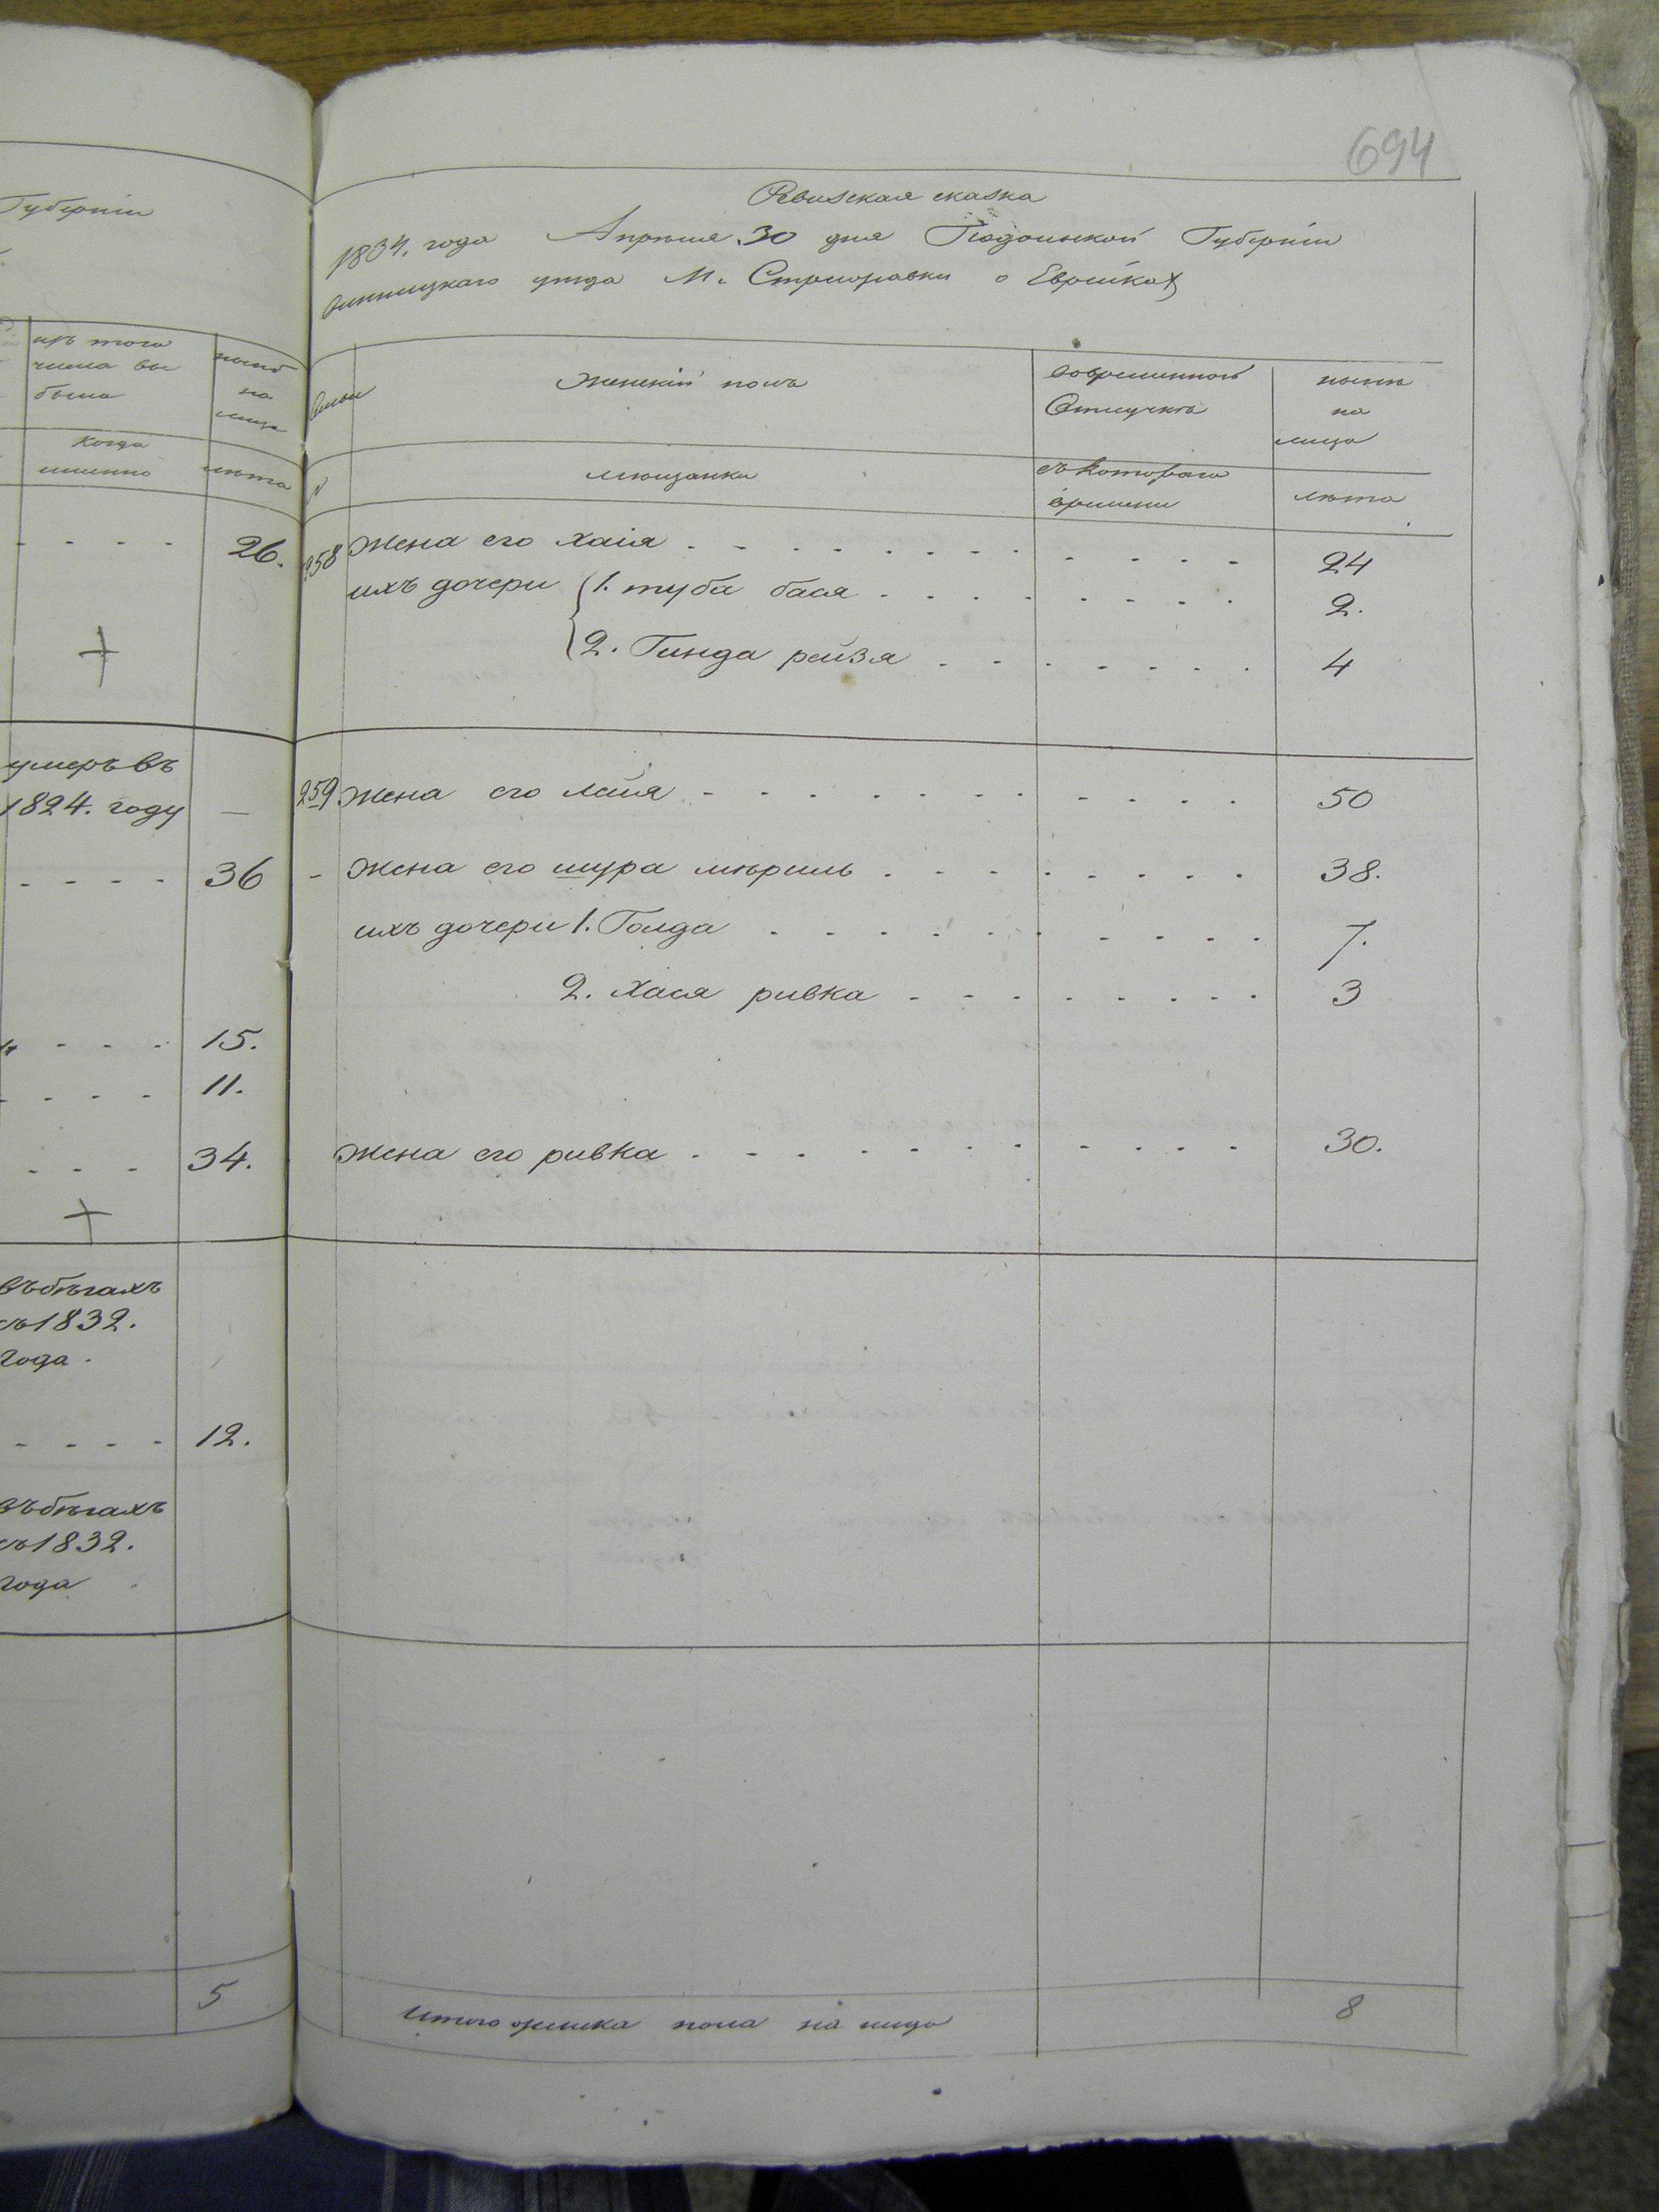 Губерніи
изъ того
числа вы
было
Когда
именно
нынѣ
на
лицо
лѣта
- - - - 26.
+
умеръ въ
1824. году —
- - - - 36
- - - 15.
- - - - 11.
- - - 34.
+
въ бѣгахъ
съ 1832.
года.
- - - - 12.
въ бѣгахъ
съ 1832.
года
5
694
Ревизская сказка
1834. года Апрѣля 30 дня Подольской Губерніи
винницкаго уѣзда М. Стрижавки о Еврейках
семьи
Женскій полъ
во временной
Отлучкѣ
нынѣ
на
лицо
№
мѣщанки
съ котораго
времени
лѣта
258 жена его хаія - - - - - - - - - - - 24
ихъ дочери 1. туба бася - - - - - - - - 2.
2. Гинда рейзя - - - - - - - 4
259 жена его лаія - - - - - - - - - - - 50
- жена его шура мѣриль - - - - - - - - 38.
ихъ дочери 1. Голда - - - - - - - - - - 7.
2. Хася ривка - - - - - - - 3
жена его ривка - - - - - - - - - - - 30.
Итого женска пола на лицо 8